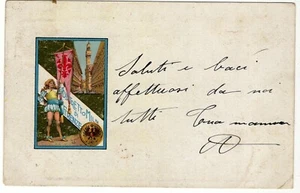 Saluti e baci
affettuosi da noi
tutti Tua mamma